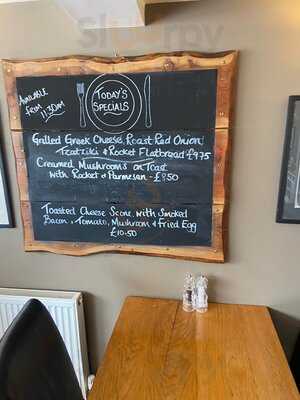 sluurpy
AVAILABLE
from 11.30am
TODAY'S
SPECIALS
Grilled Greek Cheese, Roast Red Onion,
Tzatziki & Rocket Flatbread £9.75
Creamed Mushrooms on Toast
with Rocket & Parmesan - £8.50
Toasted Cheese Scone with Smoked
Bacon, Tomato, Mushroom & Fried Egg
£10.50